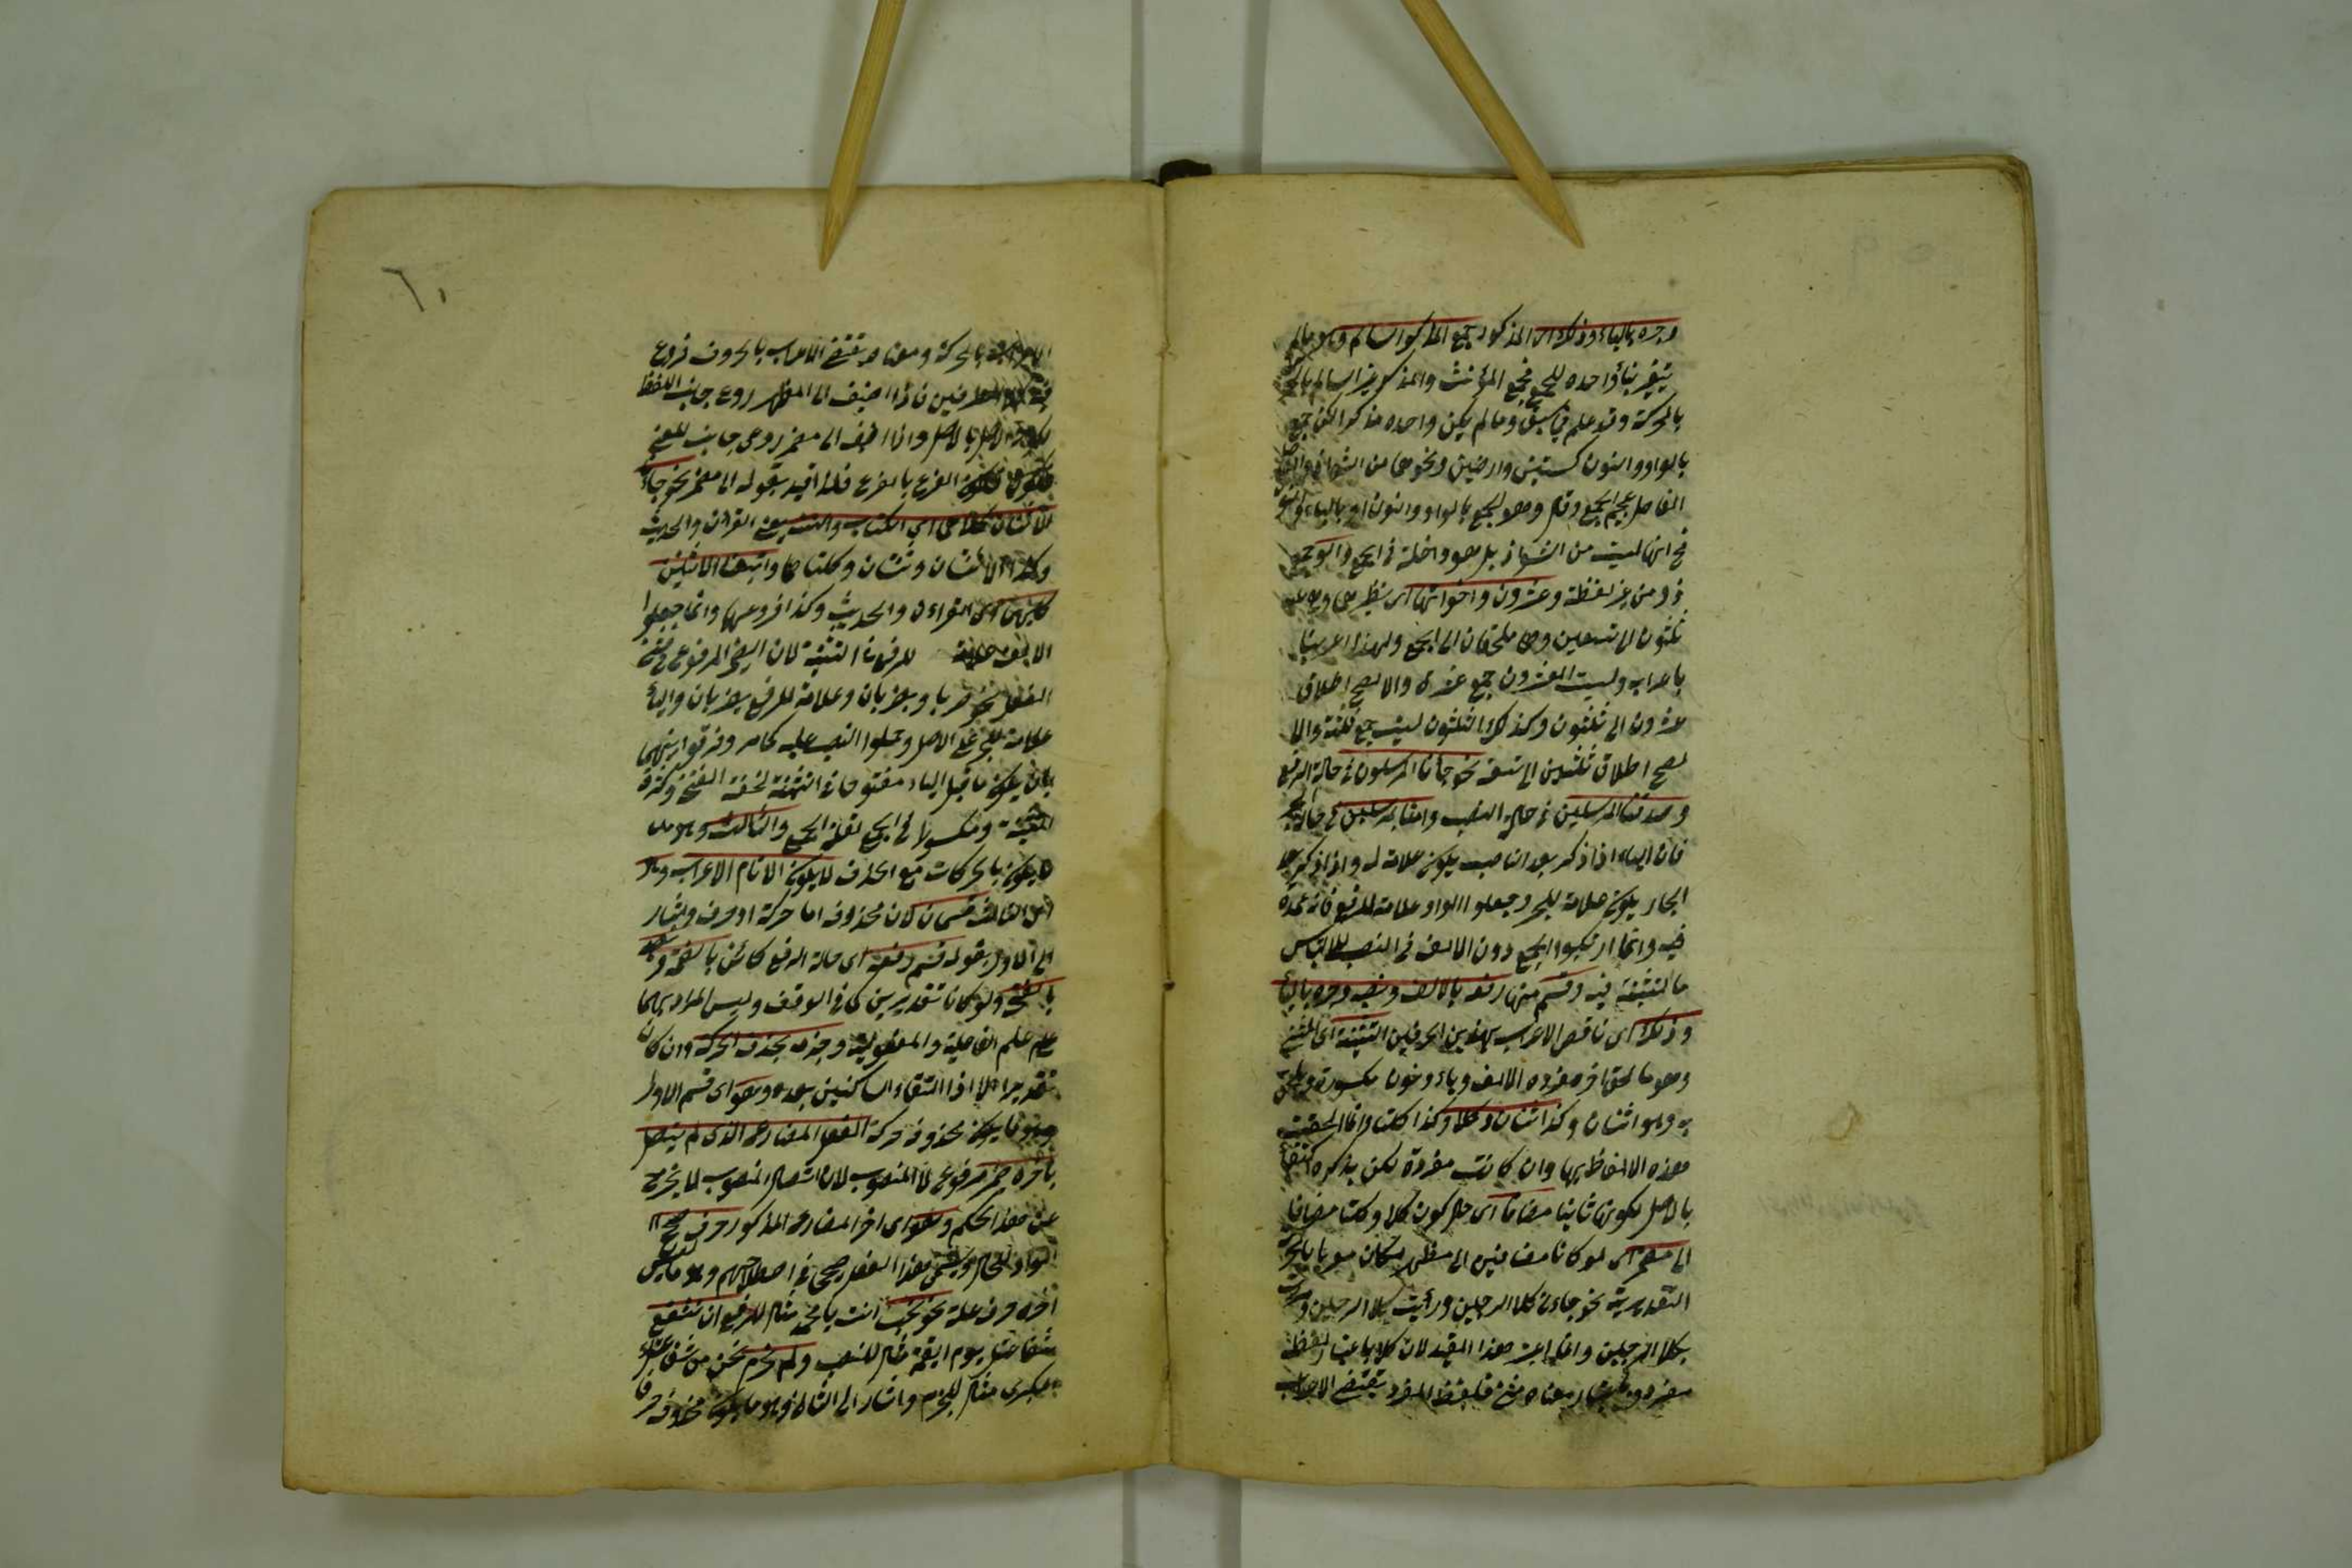 وجره بالياء وذلك اى المذكور جمع المذكر السالم وهو مالم
يتغير بناء واحده للجمع فجمع المؤنث والمذكر غير السالم بالحركة
بالحركة وقد علم فيما سبق ومالم يكن واحده مذكرا لكن جمع
بالواو والنون كسنين وارضين ونحوهما من الشواذ
الفاضل عمم الجمع وقال وهو الجمع بالواو والنون او بالياء
فح انها ليست من الشواذ بل هو داخلة فى الجمع والو جمع
ذو من غير لفظه وعشرون واخواتها اى نظيرها وهو
ثلثون الى تسعين وهما ملحقان الى الجمع ولهذا اعربتا
باعرابه وليست العشرون جمع عشرة والا لصح اطلاق
عشرون الى ثلثون وكذلك الثلثون ليست جمع ثلثة والا
لصح اطلاق ثلثين الى تسعة نحو جاءنا المرسلون فى حالة الرفع
وصدقنا المرسلين فى حالة النصب وامنا بالمرسلين فى حالة الجر
فان الياء اذا ذكر بعد الناصب يكون علامة له واذا ذكر بعد
الجار يكون علامة للجر وجعلوا الواو علامة للرفع فانه عمدة
فيه وانما ارتكبوا الجمع دون الالف فى النصب للالتباس
بالتثنية فيه وقسم منها رفعه بالالف ونصبه وجره بالياء
وذلك اى ناقص الاعراب بهذين الحرفين التثنية اى المثنى
وهو ما لحق اخر مفرده الالف وياء ونون مكسورة ويلحق
به وهو اثنان وكذا اثنتان وكلا وكذا كلتا وانما الحقت
هذه الالفاظ بها وان كانت مفردة لكن بذكره اكتفاء
بالاصل لكونها ثانيا مضافا اى حال كون كلا وكلتا مضافا
الى مضمر اى لو كانا مضافين الى مظهر لكان معربا بالحركة
التقديرية نحو جاءنى كلا الرجلين ورأيت كلا الرجلين ومررت
بكلا الرجلين وانما اعتبر هذا القيد لان كلا باعتبار لفظه
مفرد وباعتبار معناه مثنى فلفظ المفرد يقتضى الاعراب
الاعراب بالحركة ومعناه يقتضى الاعراب بالحروف فروع
فيه الطرفين فاذا اضيف الى المظهر روعى جانب اللفظ
الاصل بالاصل واذا اضيف الى مضمر روعى جانب المعنى
الفرع بالفرع فلذا قيد بقوله الى مضمر نحو جاء
الاثنان كلاهما اى الكتاب والسنة يعنى القرآن والحديث
وكذا الاثنتان وثنتان وكلتاهما واتبعنا الاثنين
كليهما اى القراءة والحديث وكذا فروعها وانما جعلوا
الالف علامة للرفع فى التثنية لان الضمير المرفوع فى تثنية
الفعل نحو ضربا ويضربان وعلامة للرفع يضربان والياء
علامة للجر على الاصل وحملوا النصب عليه كما مر وفرقوا بينهما
بان يكون ما قبل الياء مفتوحا فى التثنية لخفة الفتح وكثرة
التثنية ومكسورا فى الجمع لقلة الجمع والثالث وهو ما
يكون بالحركات مع الحذف لا يكون الا تام الاعراب
اى الثالث قسمان لان محذوفه اما حركة او حرف ويشار
الى الاول بقوله قسم رفعه اى حالة الرفع كائن بالضمة ونصبه
بالفتحة ولو كانا تقديرين كما فى الوقف وليس المراد بهما
علم علم الفاعلية والمفعولية وجزمه بحذف الحركة وان كان
تقديرا الا اذا التقاء الساكنين بعده وهو اى قسم الاول
وهو ما يكون محذوفه حركة الفعل المضارع الذى لم يتصل
باخره ضمير مرفوع اما المنصوب لان اتصال المنصوب لا يخرج
عن هذا الحكم وهو اى اخر المضارع المذكور حرف صحيح
الواو للحال ويسمى هذا الفعل صحيحا فى اصطلاحهم وهو ما ليس
اخره حرف علة نحو تحب انت يا محمد مثال للرفع ان تشفع
شفاعتك يوم القيمة مثال للنصب ولم تحرم نحن من شفاعتك
الكبرى مثال للجزم واشار الى الثانى وهو ما يكون محذوفه حرفا